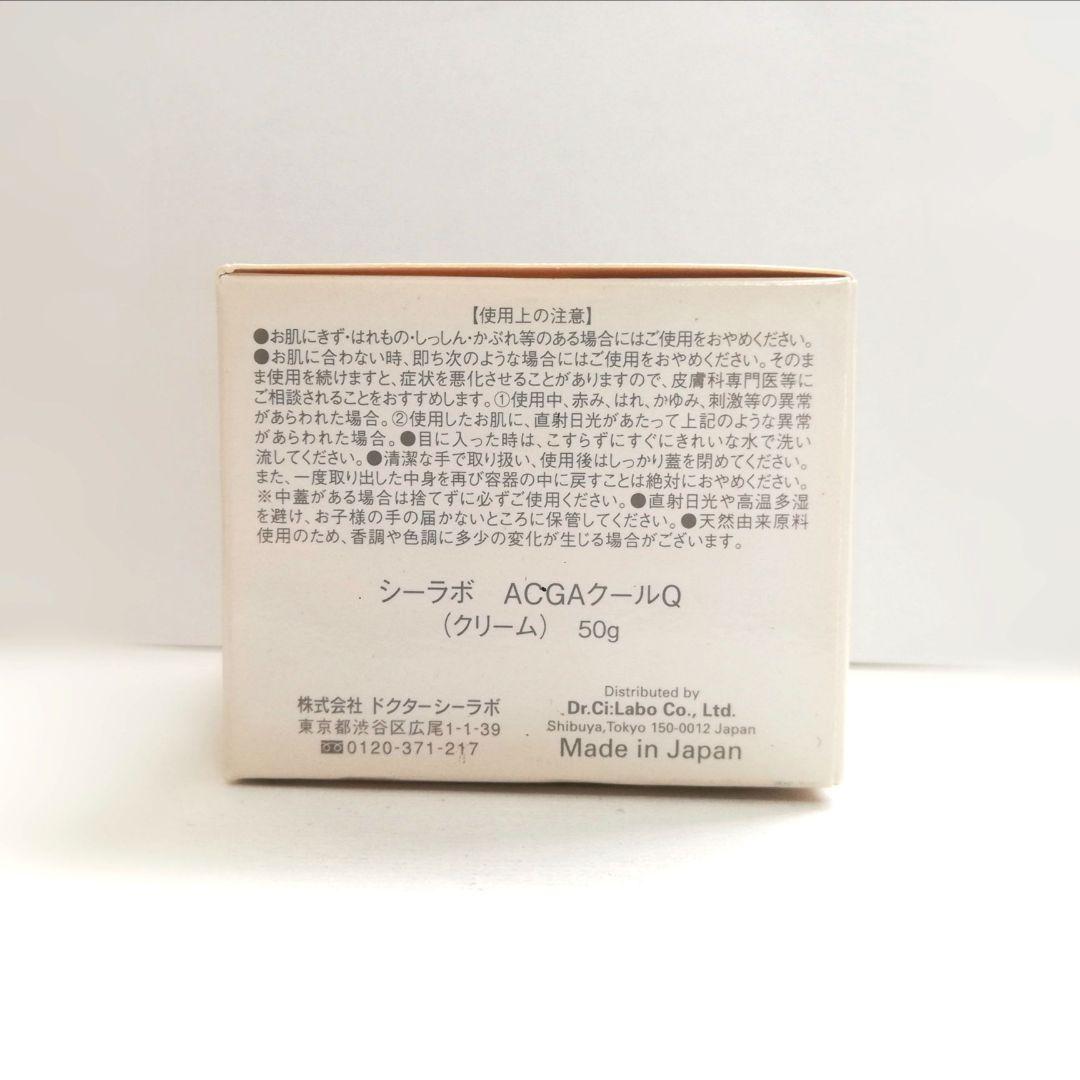 【使用上の注意】
●お肌にきず・はれもの・しっしん・かぶれ等のある場合にはご使用をおやめください。
●お肌に合わない時、即ち次のような場合にはご使用をおやめください。そのまま使用を続けますと、症状を悪化させることがありますので、皮膚科専門医等に
ご相談されることをおすすめします。①使用中、赤み、はれ、かゆみ、刺激等の異常
があらわれた場合。②使用したお肌に、直射日光があたって上記のような異常
があらわれた場合。●目に入った時は、こすらずにすぐにきれいな水で洗い
流してください。●清潔な手で取り扱い、使用後はしっかり蓋を閉めてください。
また、一度取り出した中身を再び容器の中に戻すことは絶対におやめください。
※中蓋がある場合は捨てずに必ずご使用ください。●直射日光や高温多湿
を避け、お子様の手の届かないところに保管してください。●天然由来原料
使用のため、香調や色調に多少の変化が生じる場合がございます。
シーラボ ACGAクールQ
（クリーム） 50g
株式会社 ドクターシーラボ
東京都渋谷区広尾1-1-39
0120-371-217
Distributed by
Dr.Ci:Labo Co., Ltd.
Shibuya,Tokyo 150-0012 Japan
Made in Japan